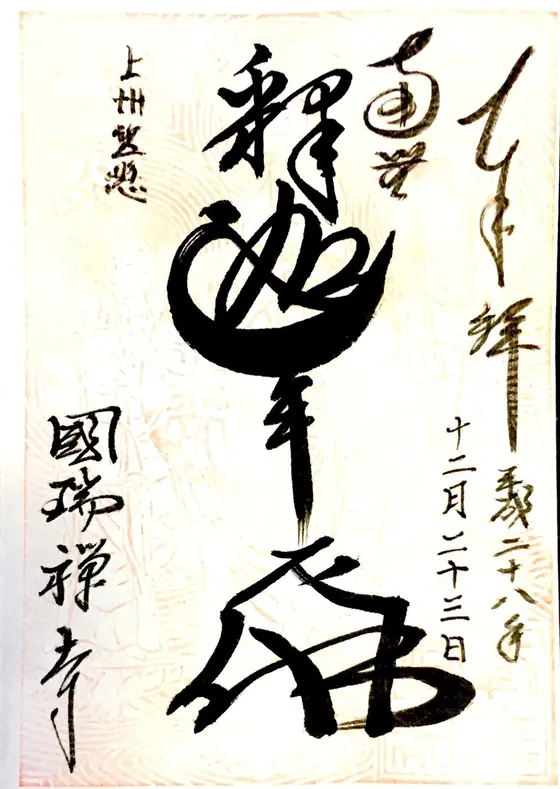 奉拝 平成二十八年
十二月二十三日
南無
釋迦牟尼佛
上州笠懸
國瑞禅寺